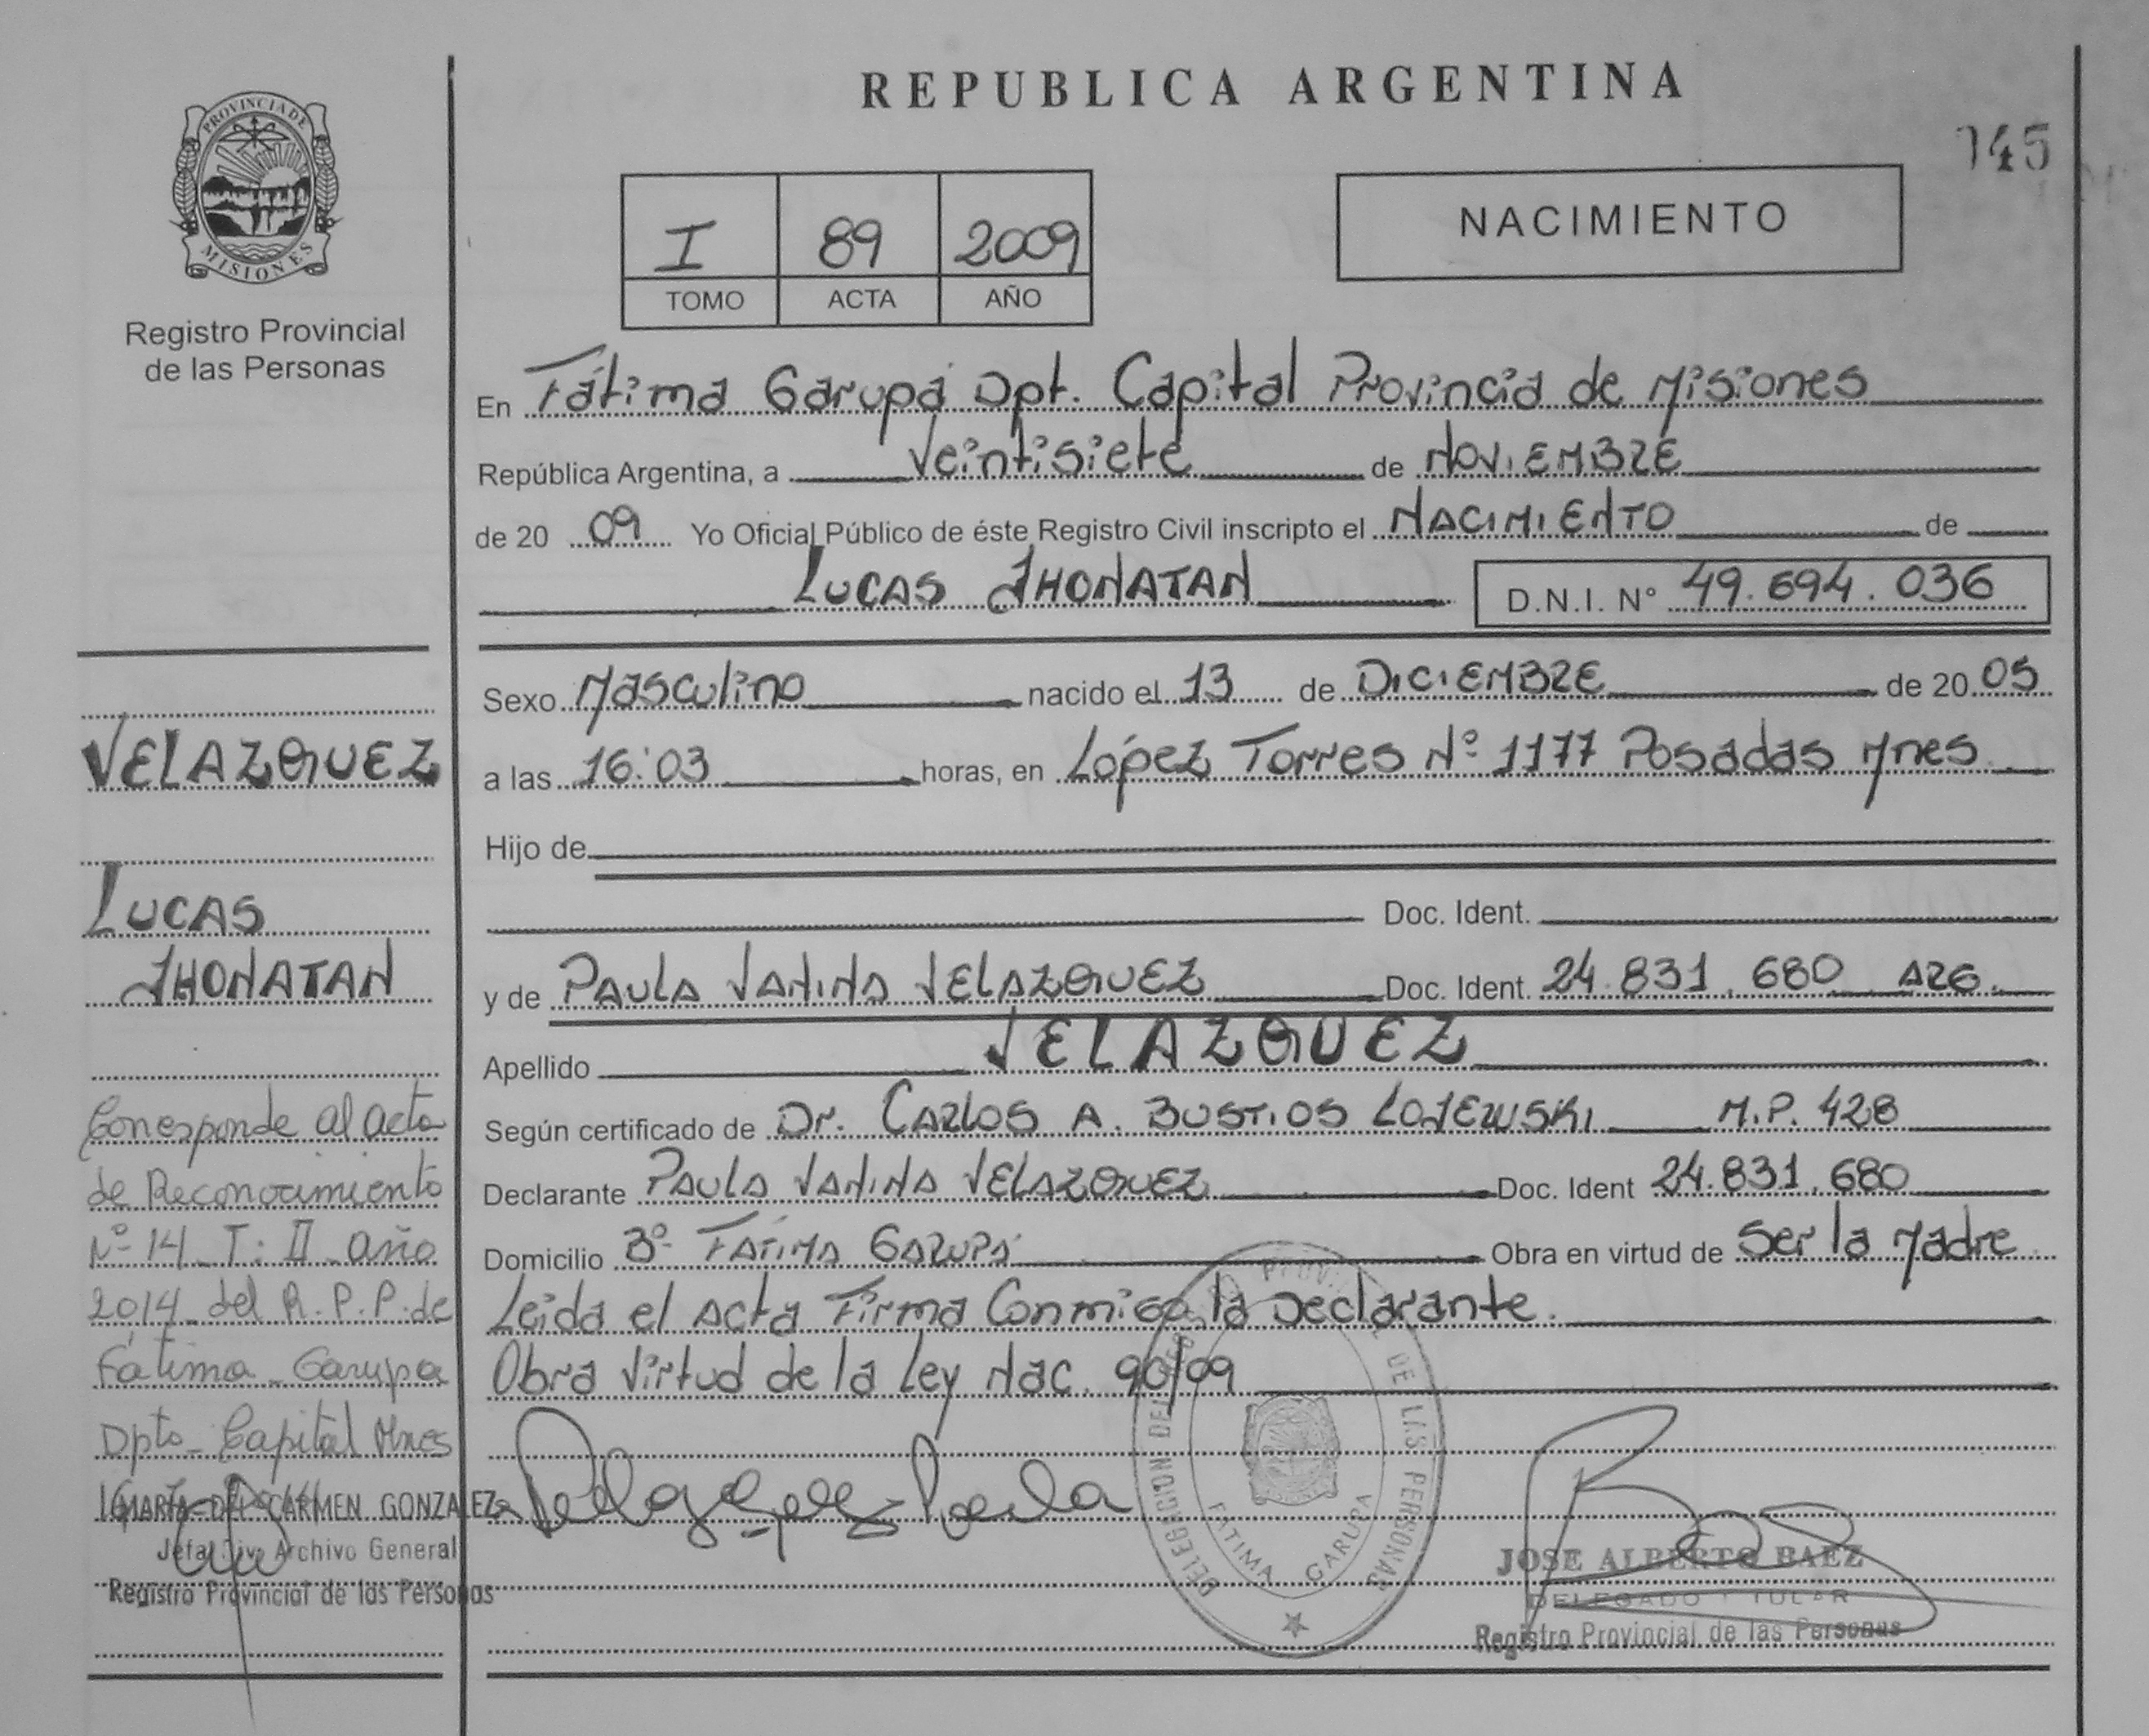 REPUBLICA ARGENTINA
145
PROVINCIA DE
MISIONES
Registro Provincial
de las Personas
I 89 2009
TOMO ACTA AÑO
NACIMIENTO
En Fátima Garupá Dpt. Capital Provincia de Misiones
República Argentina, a Veintisiete de NOVIEMBRE
de 20 09 Yo Oficial Público de éste Registro Civil inscripto el NACIMIENTO de
LUCAS JHONATAN D.N.I. N° 49.694.036
Sexo Masculino nacido el 13 de DICIEMBRE de 20 05
a las 16:03 horas, en López Torres Nº 1177 Posadas Mnes
Hijo de
Doc. Ident.
y de PAULA VANINA VELAZQUEZ Doc. Ident. 24.831.680 ARG.
Apellido VELAZQUEZ
Según certificado de Dr. CARLOS A. BUSTIOS LOJEWSKI M.P. 428
Declarante PAULA VANINA VELAZQUEZ Doc. Ident 24.831.680
Domicilio Bº FATIMA GARUPA Obra en virtud de Ser la Madre
Leida el Acta Firma Conmigo la Declarante.
Obra Virtud de la Ley Nac. 90/09
VELAZQUEZ
LUCAS
JHONATAN
Corresponde al acta
de Reconocimiento
Nº 14 T: II año
2014 del R.P.P. de
Fátima Garupa
Dpto Capital Mnes
MARIA DEL CARMEN GONZALEZ
Jefa Div. Archivo General
Registro Provincial de las Personas
Velazquez Paula
DELEGACION DEL REGISTRO PROVINCIAL DE LAS PERSONAS
FATIMA GARUPA
JOSE ALBERTO BAEZ
DELEGADO TITULAR
Registro Provincial de las Personas